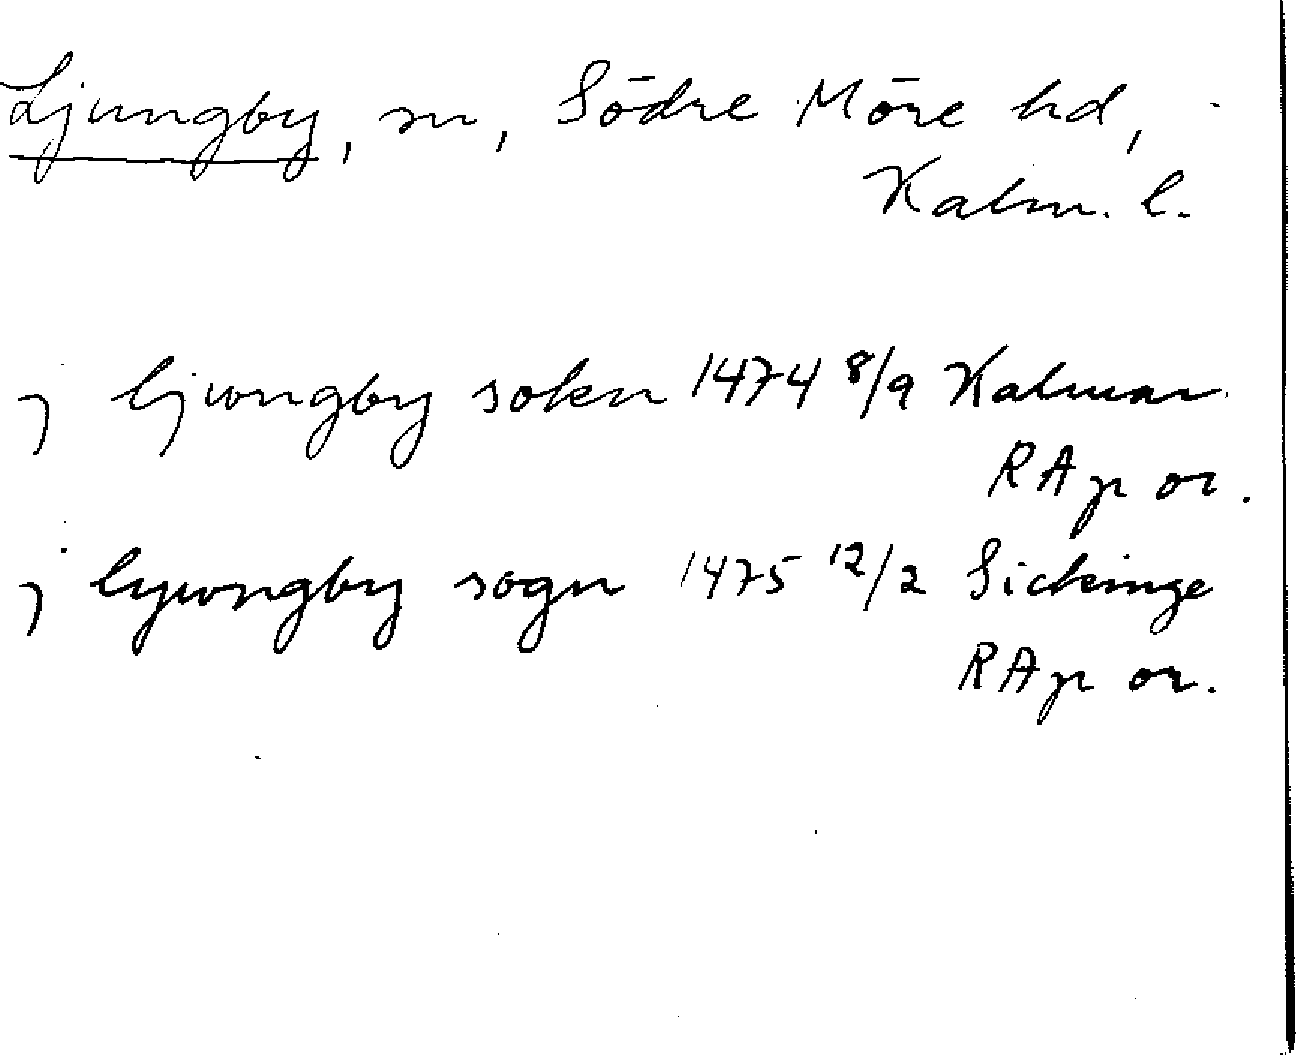 Ljungby, sn, Södre Möre hd,
Kalm. l.
j ljwngby sokn 1474 8/9 Kalmar
RAp or.
j lywngby sogn 1475 12/2 Sickinge
RAp or.